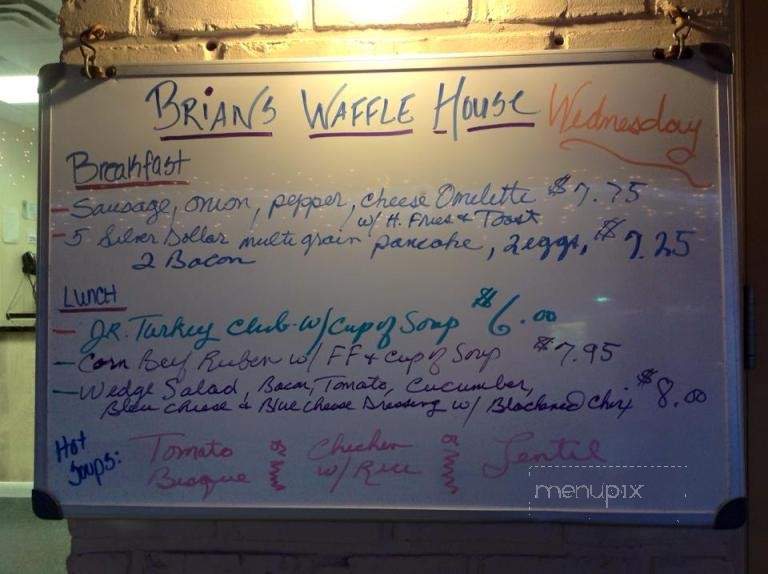 BRIAN'S WAFFLE HOUSE Wednesday
Breakfast
- Sausage, onion, pepper, cheese Omelette $7.75
w/ H. Fries & Toast
- 5 Silver Dollar multi grain pancake, 2 eggs, $7.25
2 Bacon
LUNCH
- JR. Turkey Club w/ Cup of Soup $6.00
- Corn Beef Ruben w/ FF & Cup of Soup $7.95
- Wedge Salad, Bacon, Tomato, Cucumber, $8.00
Bleu Cheese & Blue Cheese Dressing w/ Blackened Chix
Hot Soups: Tomato Bisque or Chicken w/ Rice or Lentil
menupix